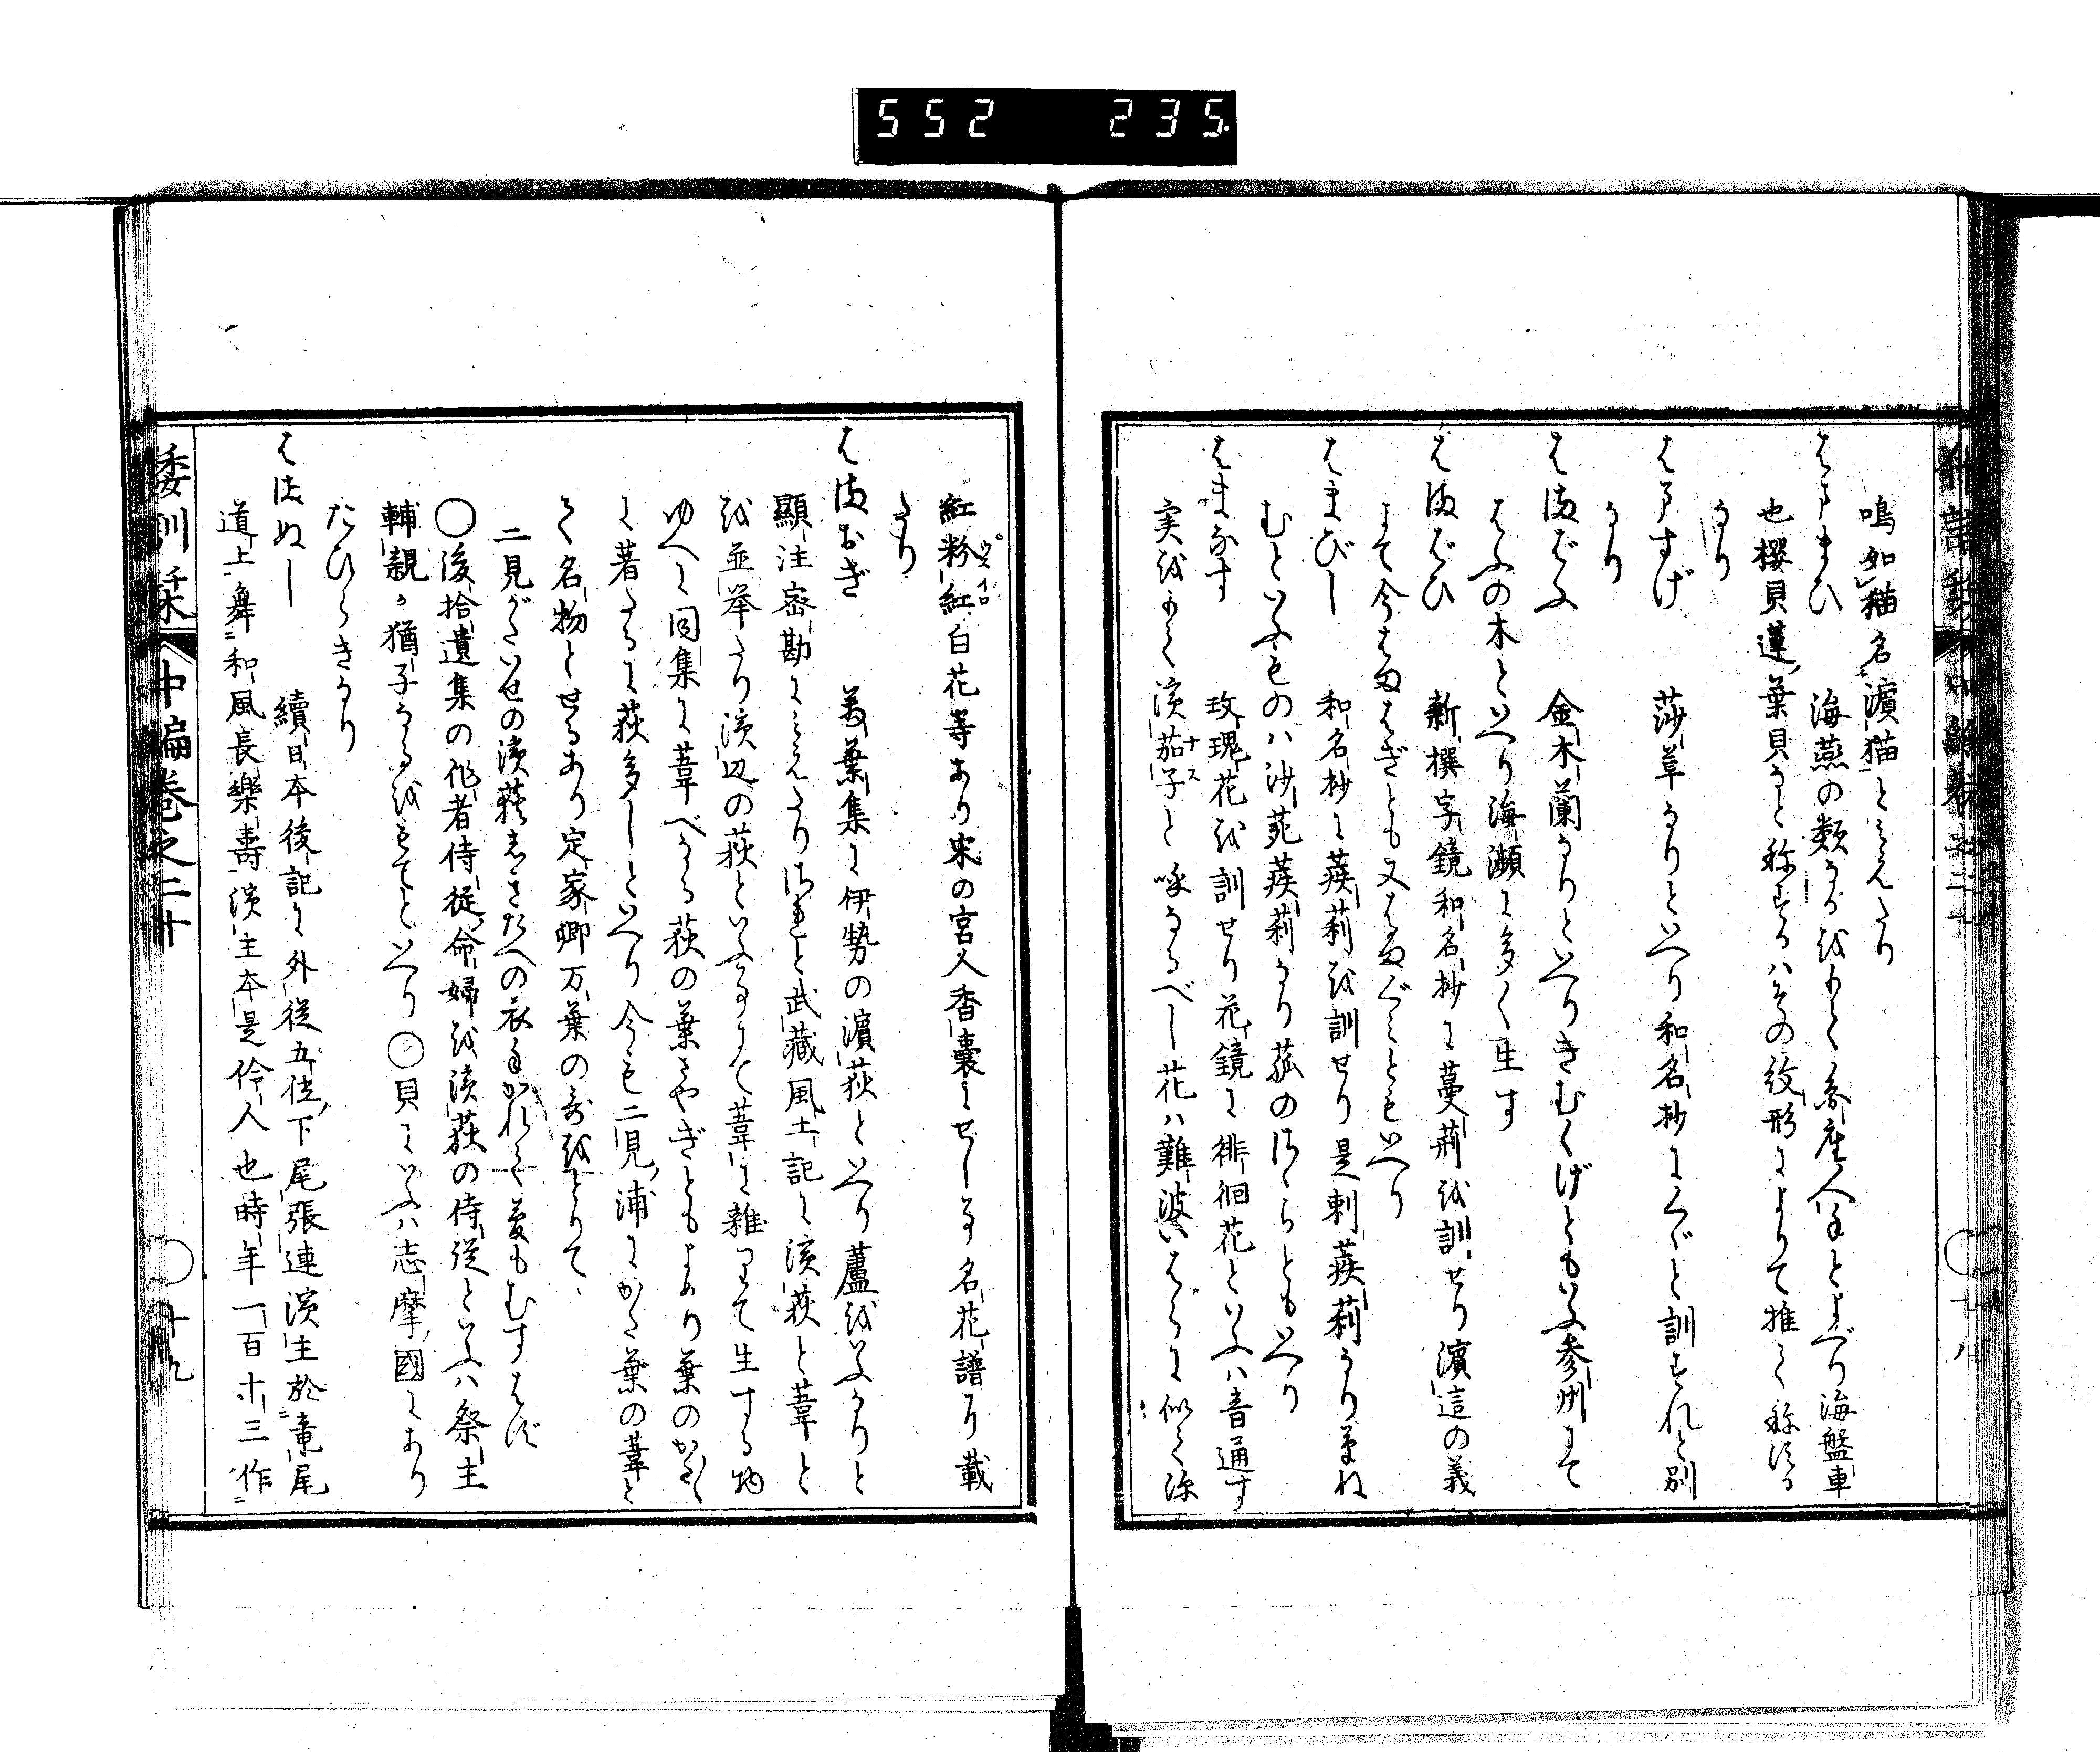 552 235
鳴如猫名濵猫とみえたり
はままひ 海燕の類なるをもて参座人手とよべり海盤車
也櫻貝蓮葉貝なと称するハその紋形によりて推て称する
なり
はますげ 莎草なりといへり和名抄にくゞと訓すれと別
なり
はまばふ 金木蘭なりといへりきむくげともいふ参州にて
はふの木といへり海瀕に多く生す
はまばひ 新撰字鏡和名抄に蔓荊を訓せり濵這の義
よて今はまはぎとも又はまぐことも いへり
はまびし 和名抄に蒺䔧を訓せり是刺蒺䔧なりまね
むといふものハ沙苑蒺䔧なり菰のほらともいへり
はまなす 玫瑰花を訓せり花鏡に徘徊花といふハ音通す
実をもて濱茄子ナスと呼なるべし花ハ難波いはらに似て深
紅粉紅ウスイロ白花等あり宋の宮人香嚢にせし事名花譜に載
たり
はまおぎ 萬葉集に伊勢の濵荻といへり蘆をいふなりと
顯注密勘にみえたりされと武藏風土記に濱荻と葦と
を並挙たり濱辺の荻といふ事にて葦に雑りて生する物
ゆへに同集に葦べなる荻の葉さやぎともよめり葉のかたく
に著たるに荻多しといへり今も二見浦にかた葉の葦と
て名物とせるあり定家卿万葉の哥をとりて
二見がたいせの濱荻しきたへの衣手かれて夢もむすばず
○後拾遺集の作者侍従命婦を濱荻の侍従といふハ祭主
輔親の猶子なるをもてといへり○貝にいふハ志摩國にあり
たひらきなり
はまぬし 續日本後記に外従五位下尾張連濱主於竜尾
道上舞和風長樂壽濱主本是伶人也時年一百十三作
委訓栞 中編巻之二十 ○十九